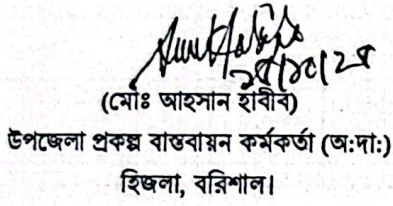 (মোঃ আহসান হাবীব)
উপজেলা প্রকল্প বাস্তবায়ন কর্মকর্তা (অ:দা:)
হিজলা, বরিশাল।